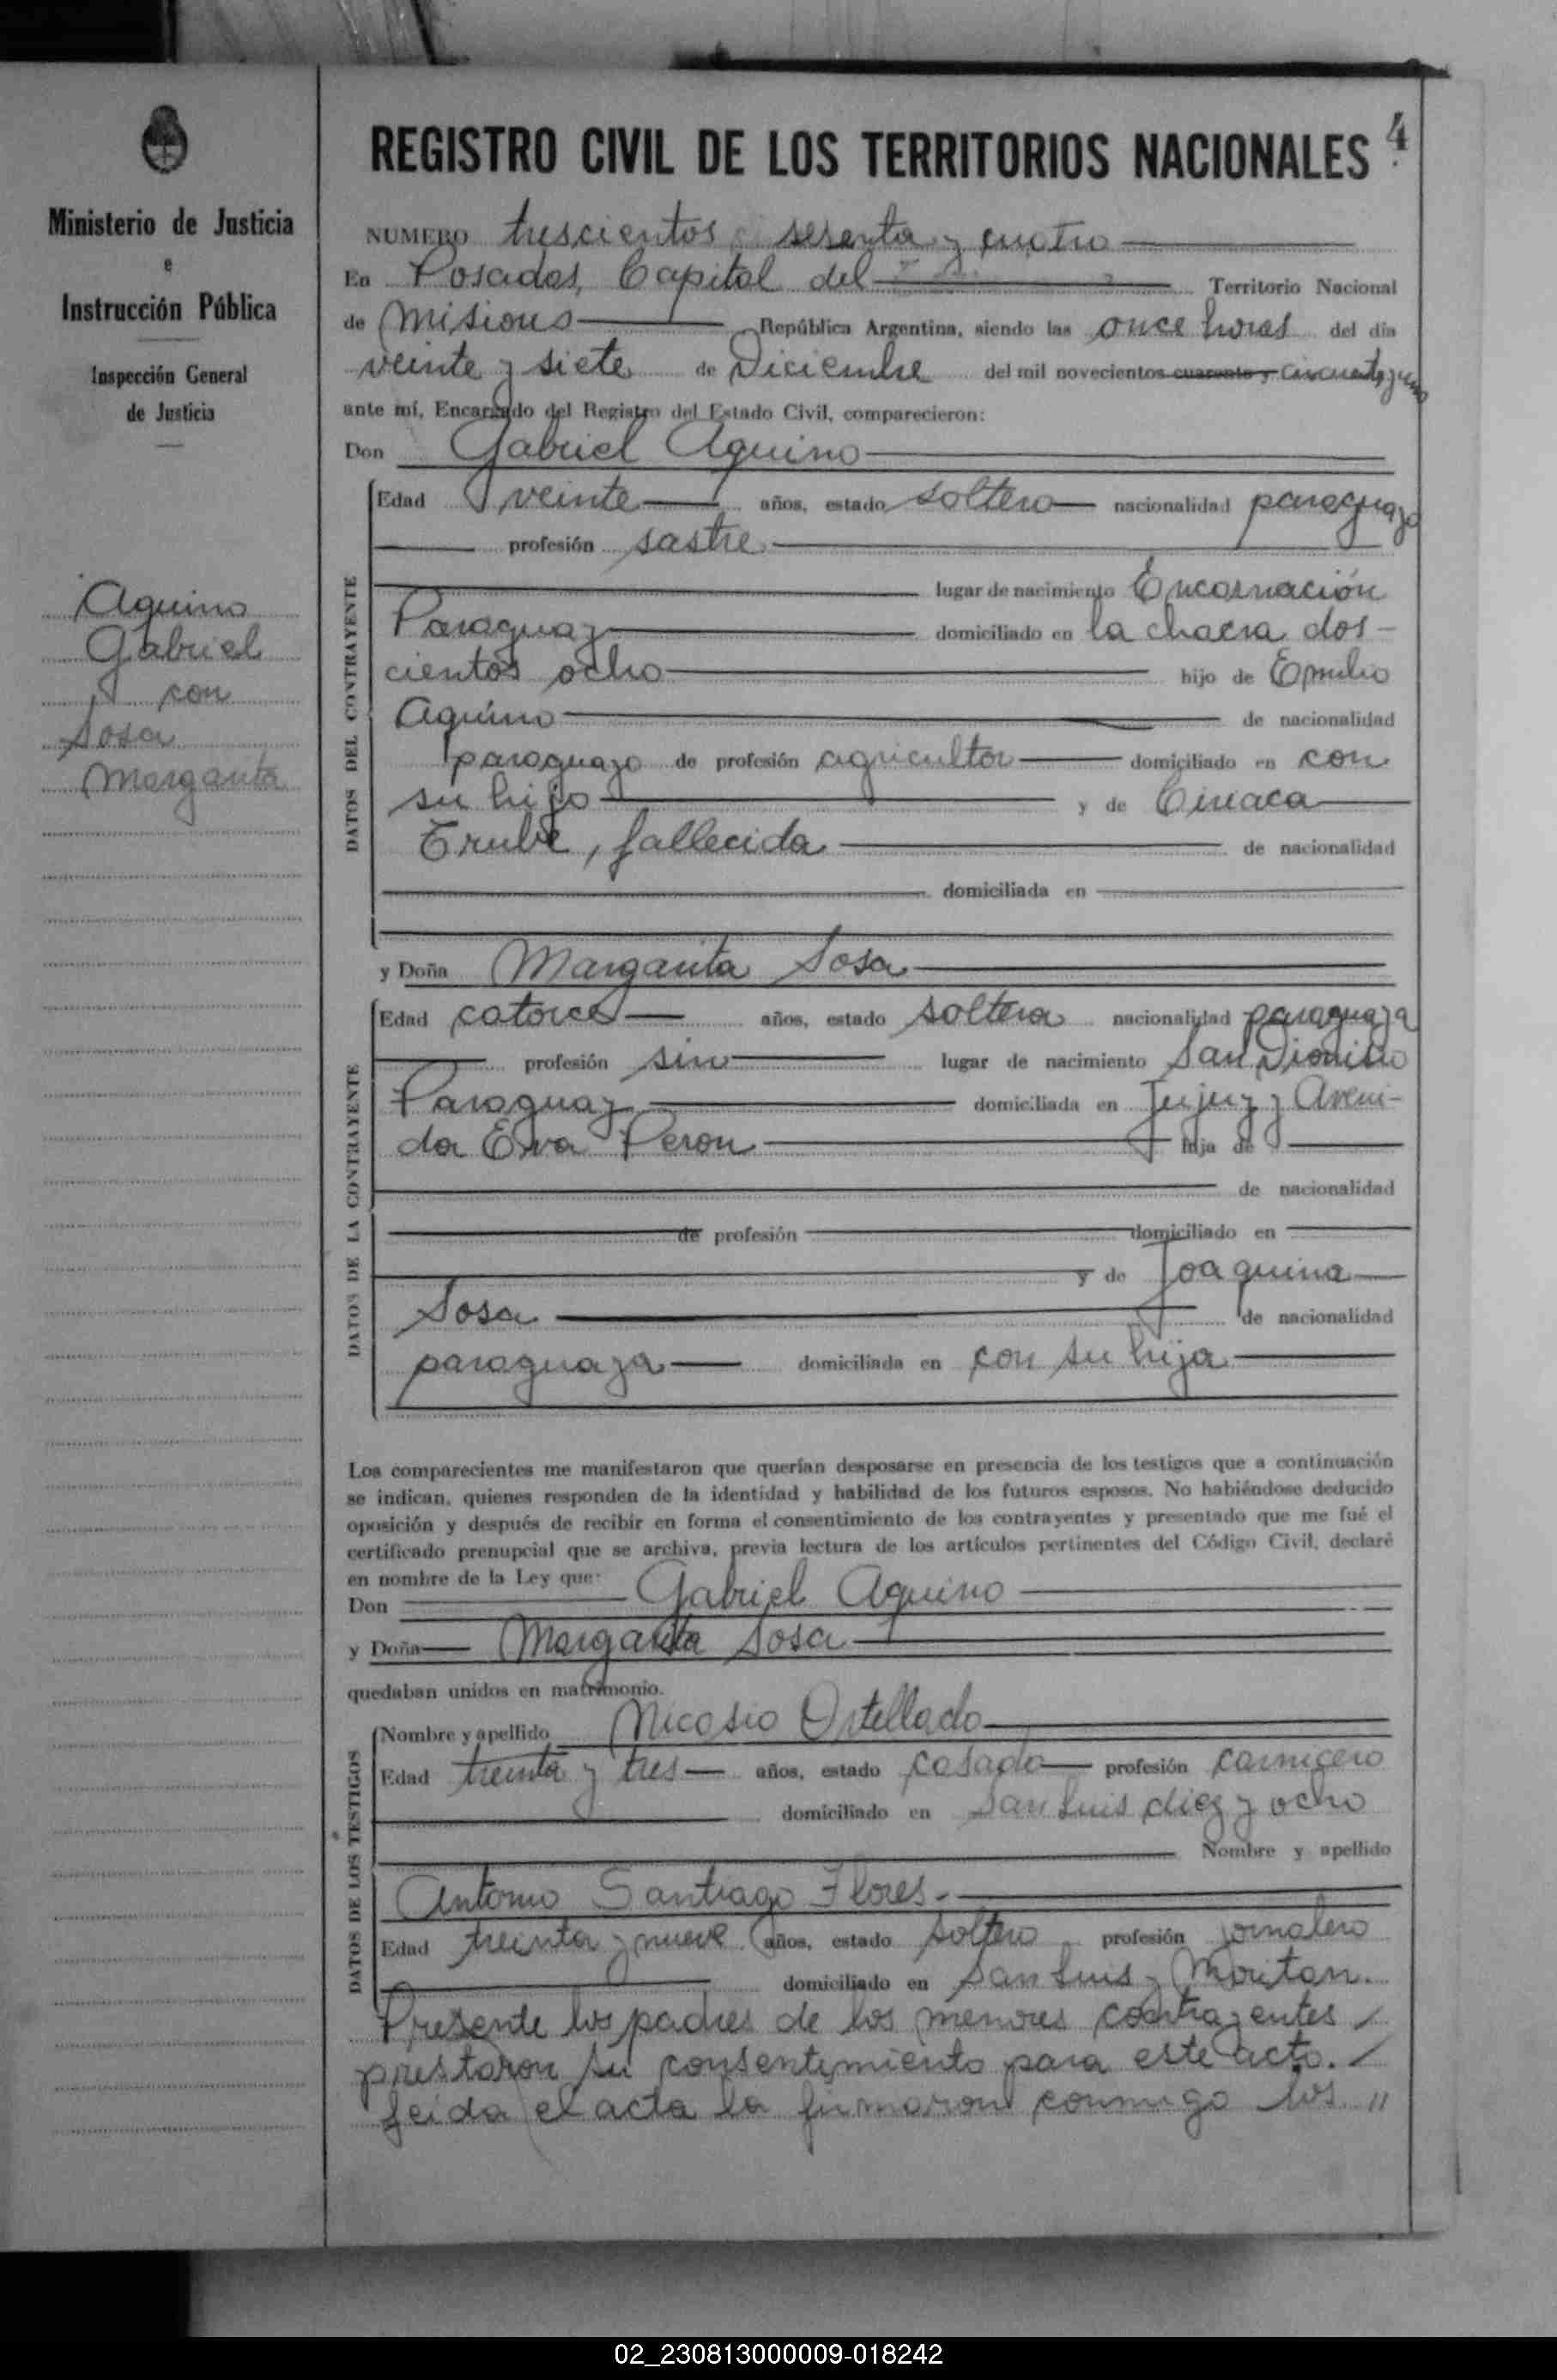 REGISTRO CIVIL DE LOS TERRITORIOS NACIONALES 4
Ministerio de Justicia
e
Instrucción Pública
Inspección General
de Justicia
Aquino
Gabriel
con
Sosa
Margarita
NUMERO trescientos sesenta y cuatro
En Posadas, Capital del Territorio Nacional
de Misiones República Argentina, siendo las once horas del día
veinte y siete de Diciembre del mil novecientos cuarenta y cincuenta y uno
ante mí, Encargado del Registro del Estado Civil, comparecieron:
Don Gabriel Aquino
DATOS DEL CONTRAYENTE
Edad veinte años, estado soltero nacionalidad paraguayo
profesión sastre
lugar de nacimiento Encarnación
Paraguay domiciliado en la chacra dos-
cientos ocho hijo de Emilio
Aquino de nacionalidad
paraguayo de profesión agricultor domiciliado en con
su hijo y de Ciriaca
, fallecida de nacionalidad
domiciliada en
y Doña Margarita Sosa
DATOS DE LA CONTRAYENTE
Edad catorce años, estado soltera nacionalidad paraguaya
profesión sin lugar de nacimiento San Dionisio
Paraguay domiciliada en Jujuy y Aveni-
da Eva Peron hija de
de nacionalidad
de profesión domiciliado en
y de Joaquina
Sosa de nacionalidad
paraguaya domiciliada en con su hija
Los comparecientes me manifestaron que querían desposarse en presencia de los testigos que a continuación
se indican, quienes responden de la identidad y habilidad de los futuros esposos. No habiéndose deducido
oposición y después de recibir en forma el consentimiento de los contrayentes y presentado que me fué el
certificado prenupcial que se archiva, previa lectura de los artículos pertinentes del Código Civil, declaré
en nombre de la Ley que:
Don Gabriel Aquino
y Doña Margarita Sosa
quedaban unidos en matrimonio.
DATOS DE LOS TESTIGOS
Nombre y apellido Nicasio Ortellado
Edad treinta y tres años, estado casado profesión carnicero
domiciliado en San Luis diez y ocho
Nombre y apellido
Antonio Santiago Flores.
Edad treinta y nueve años, estado soltero profesión jornalero
domiciliado en San Luis y Moritan.
Presente los padres de los menores contrayentes
prestaron su consentimiento para este acto.
Leida el acta la firmaron conmigo los "
02_230813000009-018242